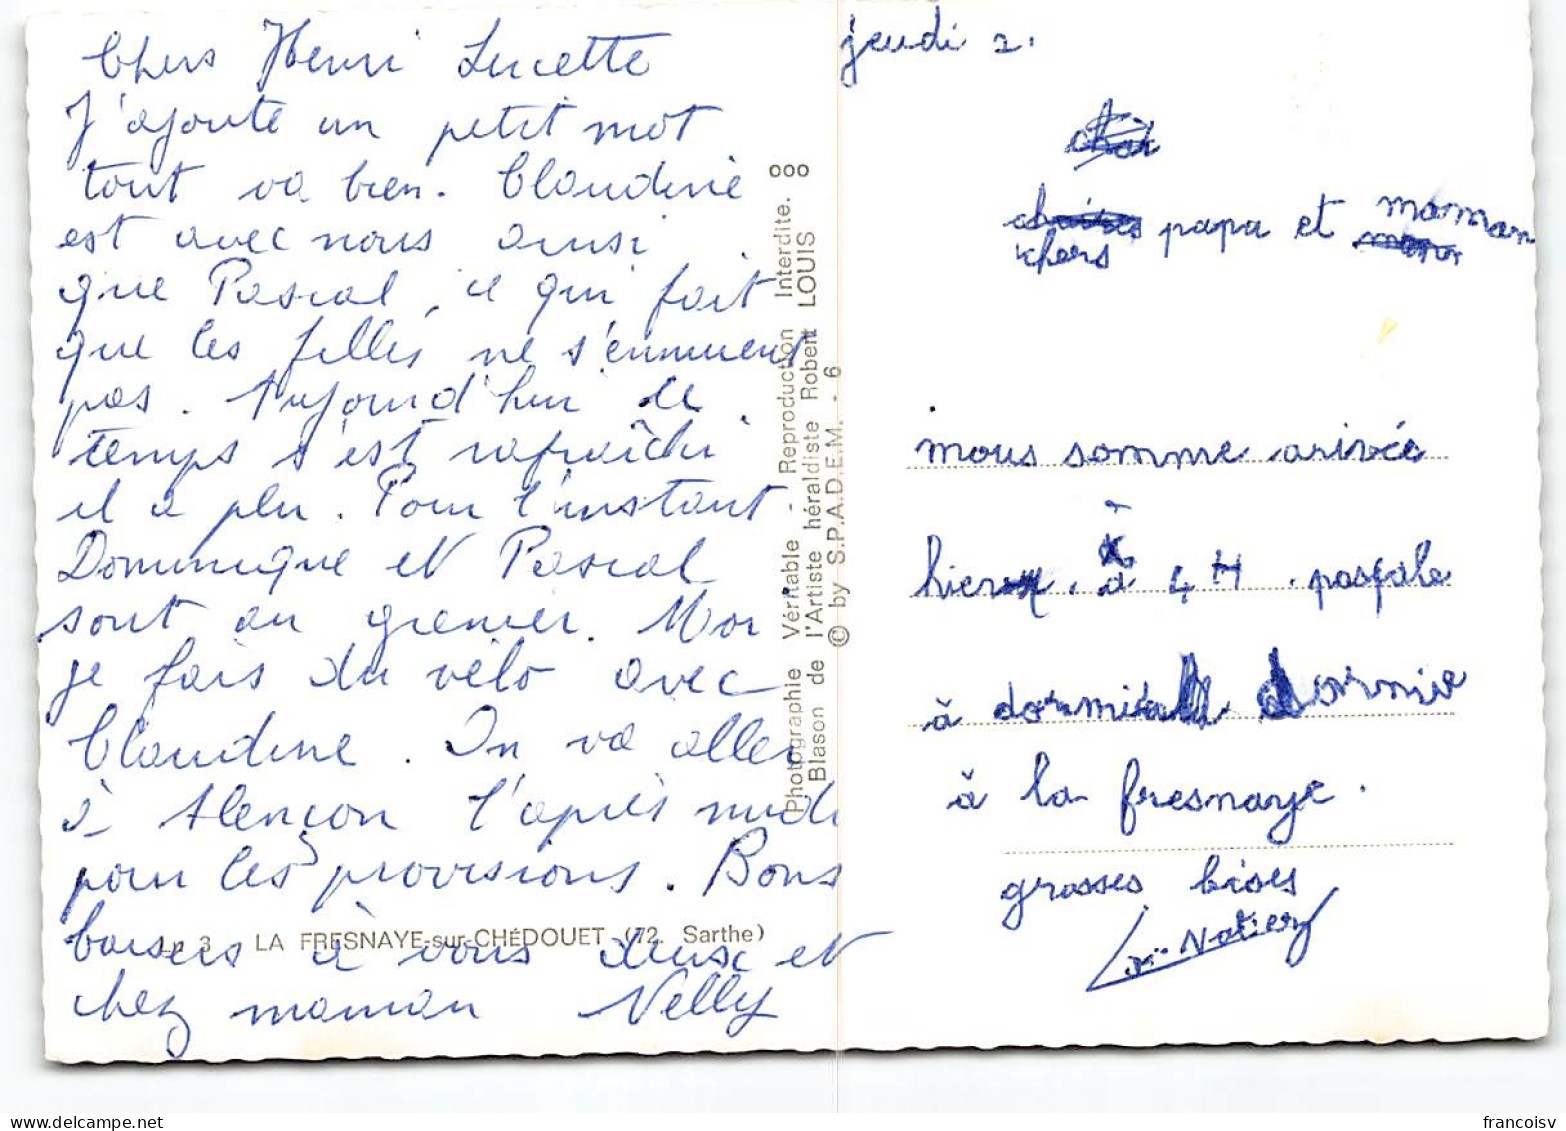 Chers Henri Lucette
J'ajoute un petit mot
tout va bien. Claudine
est avec nous ainsi
que Pascal, ce qui fait
que les filles ne s'ennuient
pas. Aujourd'hui le
temps s'est rafraîchi
il a plu. Pour l'instant
Dominique et Pascal
sont au grenier. Moi
je fais du vélo avec
Claudine. On va aller
à Alençon l'après midi
pour les provisions. Bons
baisers à vous deux et
chez maman Nelly
3 LA FRESNAYE-sur-CHÉDOUET (72 Sarthe)
Photographie Véritable - Reproduction Interdite.
Blason de l'Artiste héraldiste Robert LOUIS
© by S.P.A.D.E.M. - 6
jeudi 2.
chers papa et maman
nous somme arivée
hier à 4 H. pasfale
à dormir dormie
à la fresnaye.
grosses bises
francoisv
www.delcampe.net